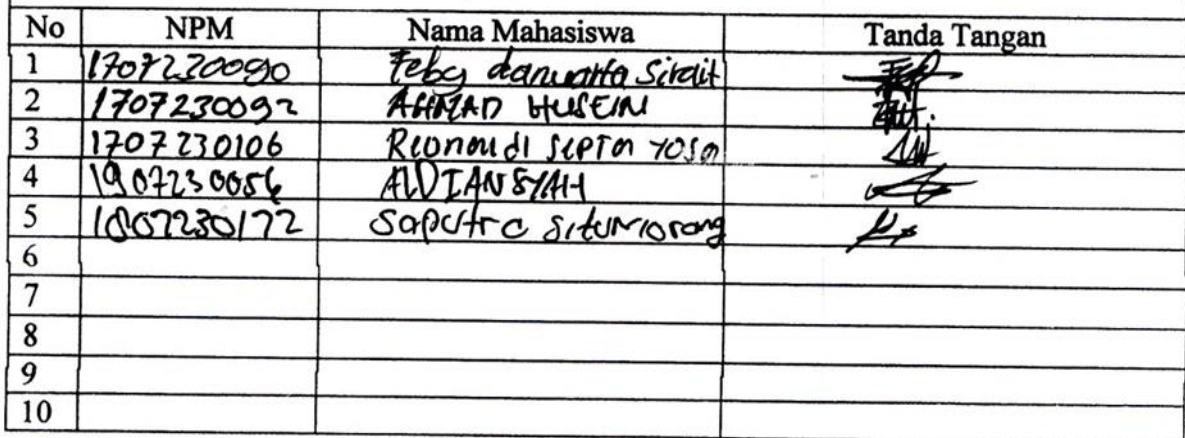 No NPM Nama Mahasiswa Tanda Tangan
1 1707230090 Feby danuarta Sirait
2 1707230092 AHMAD HUSEIN
3 1707230106 septa yosa
4 1907230056 ALDIANSYAH
5 1807230172 Saputra situmorang
6
7
8
9
10